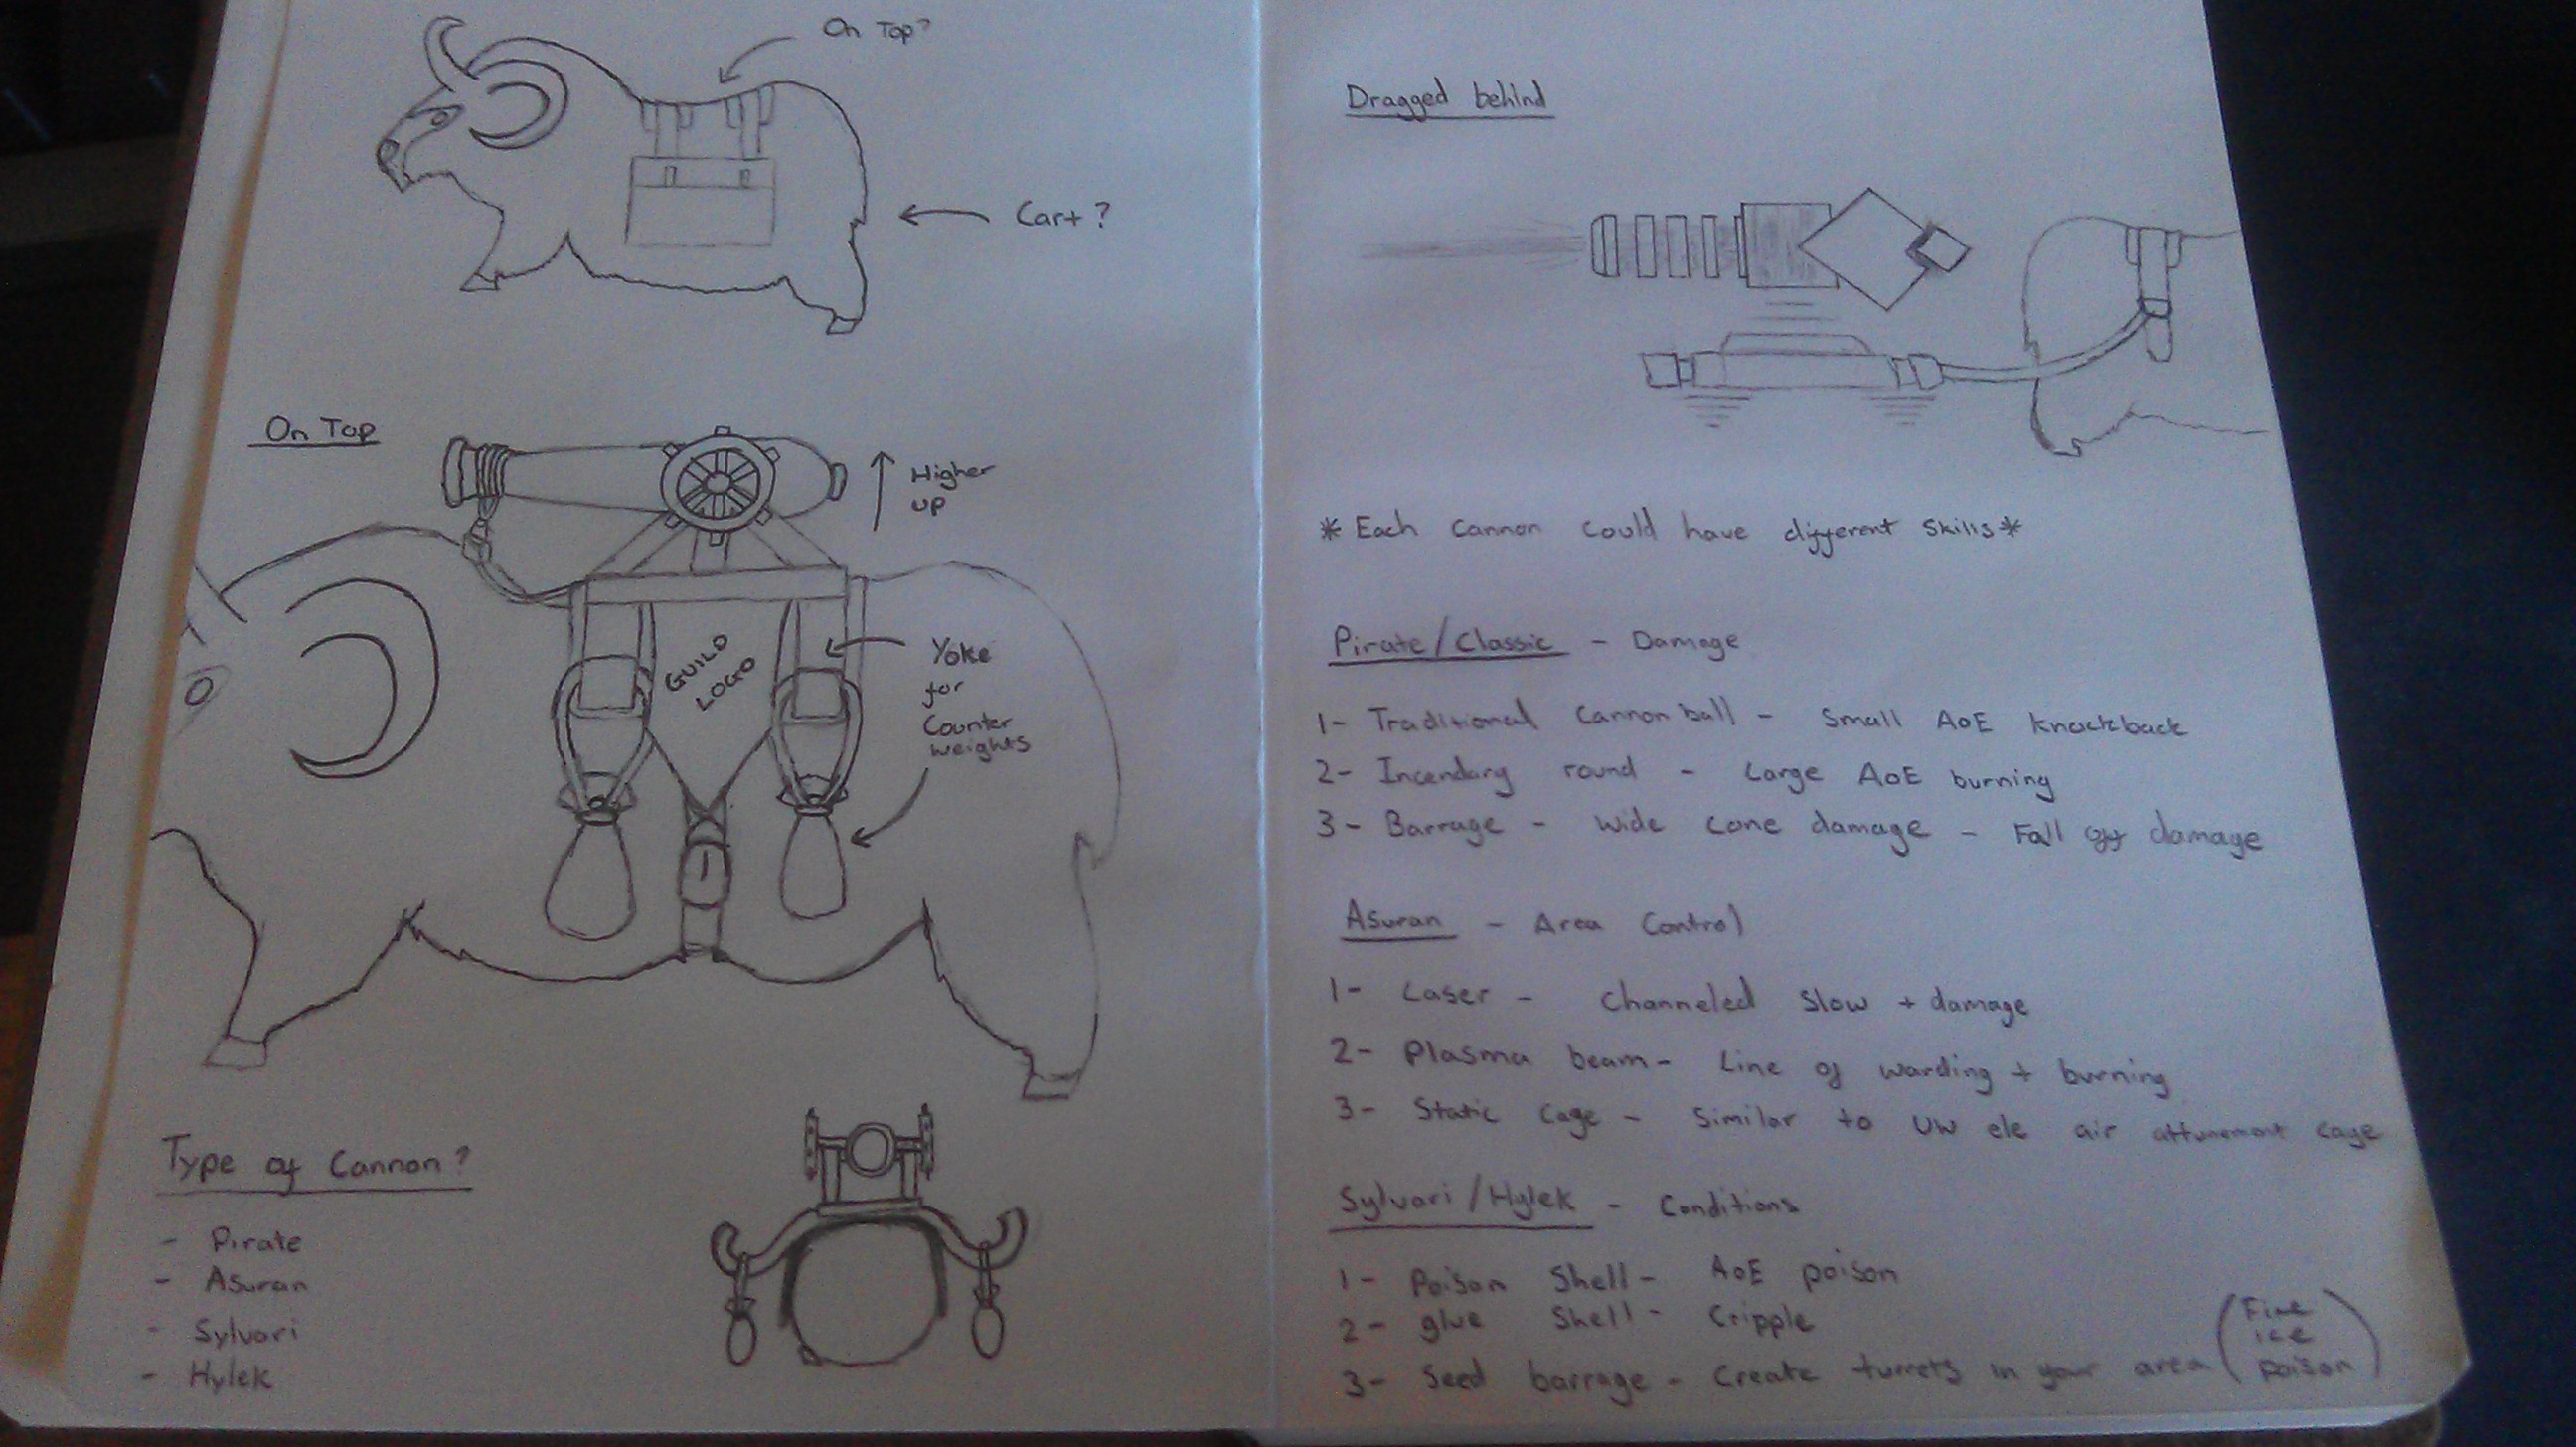 On Top?
Cart?
On Top
Higher
up
GUILD
LOGO
Yoke
for
Counter
weights
Type of Cannon?
- Pirate
- Asuran
- Sylvari
- Hylek
Dragged behind
* Each Cannon Could have different Skills *
Pirate/Classic - Damage
1- Traditional Cannon ball - Small AoE knockback
2- Incendary round - Large AoE burning
3- Barrage - Wide Cone damage - Fall off damage
Asuran - Area Control
1- Laser - Channeled Slow + damage
2- Plasma beam - Line of warding + burning
3- Static Cage - Similar to UW ele air attunement cage
Sylvari/Hylek - Conditions
1- Poison Shell - AoE poison
2- glue Shell - Cripple
3- Seed barrage - Create turrets in your area (Fire
ice
poison)